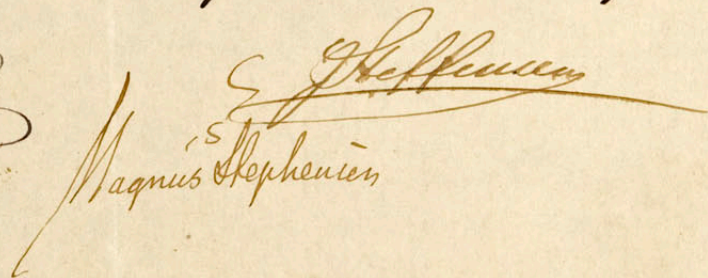 Steffensen
Magnús Stephensen